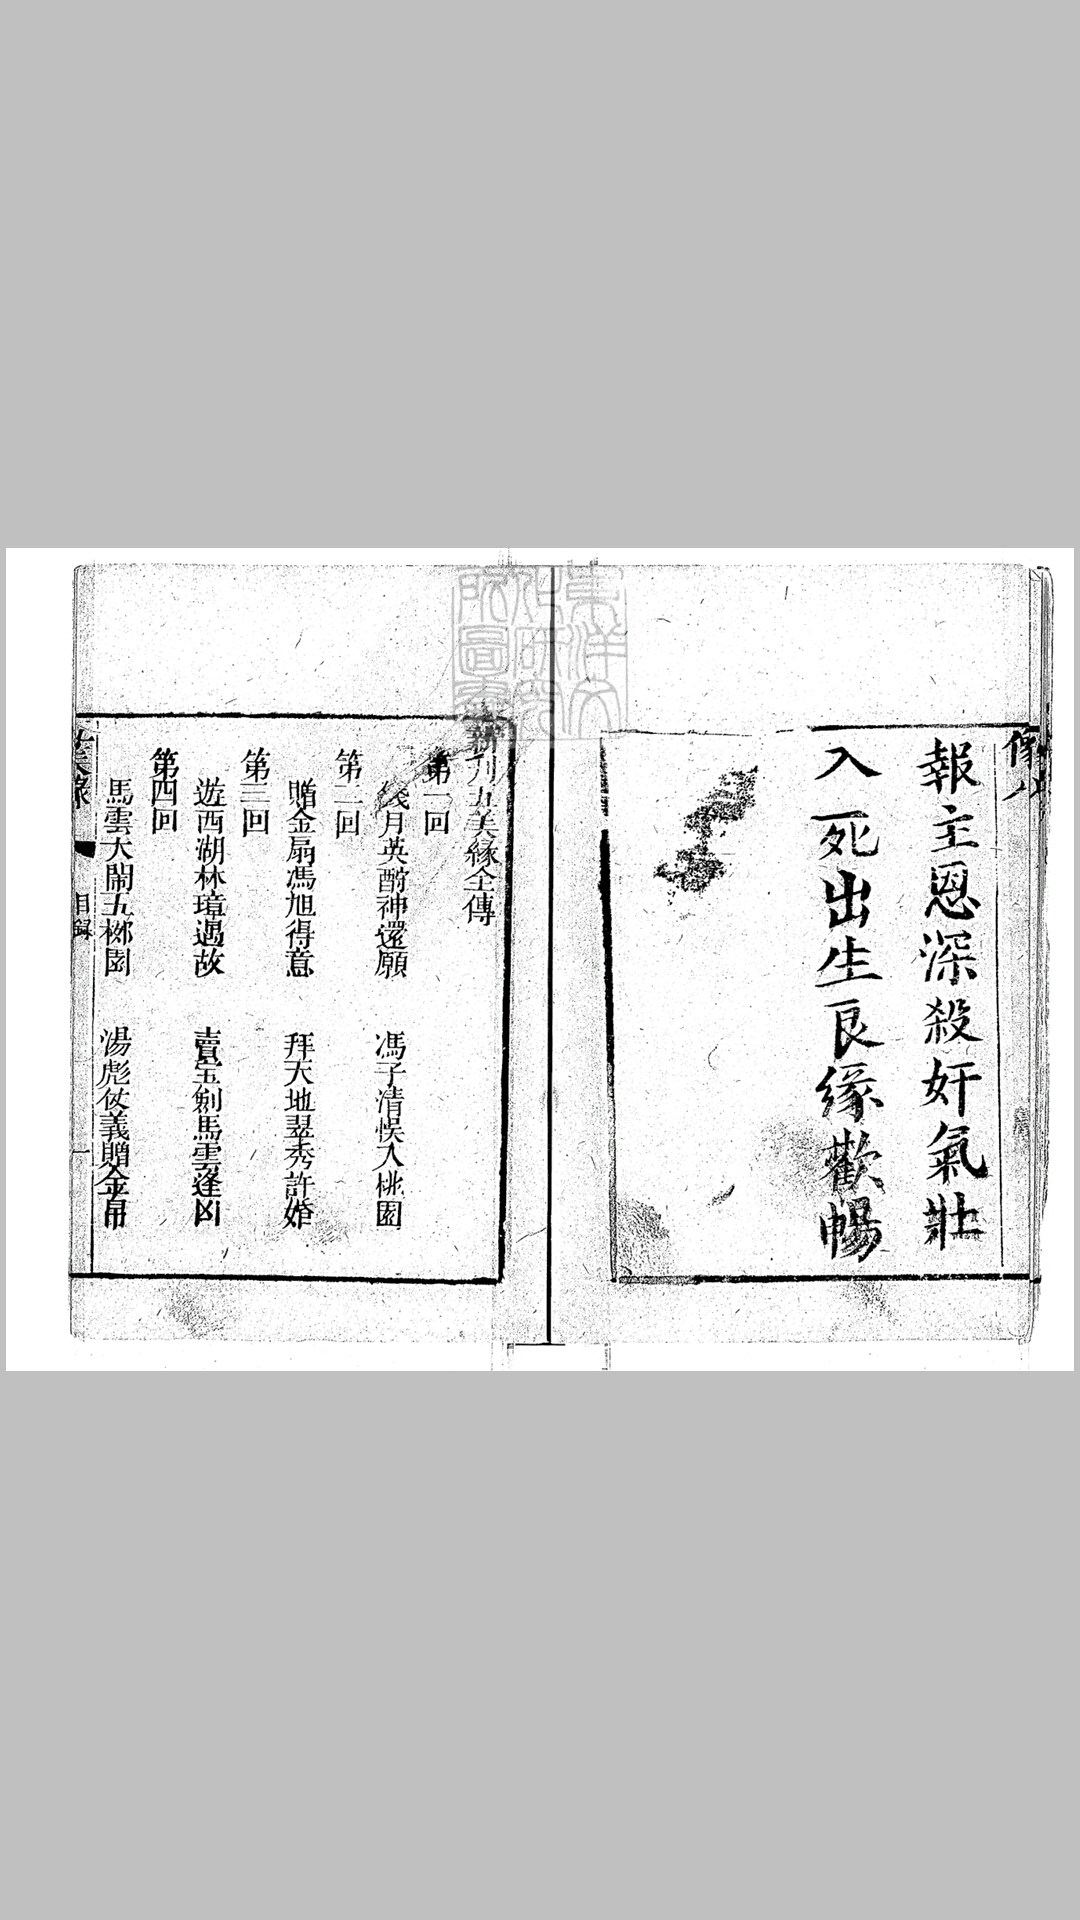 像八
報主恩深殺奸氣壯
入死出生良緣歡暢
新刊五美緣全傳
第一回
錢月英酧神還願　馮子清悞入桃園
第二回
贈金扇馮旭得意　拜天地翠秀許婚
第三回
遊西湖林璋遇故　賣宝劍馬雲逢凶
第四回
馬雲大鬧五柳園　湯彪仗義贈金帛
五美緣
目録
一
東洋文化研究所圖書